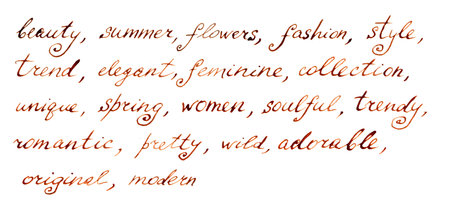 beauty, summer, flowers, fashion, style,
trend, elegant, feminine, collection,
unique, spring, women, soulful, trendy,
romantic, pretty, wild, adorable,
original, modern